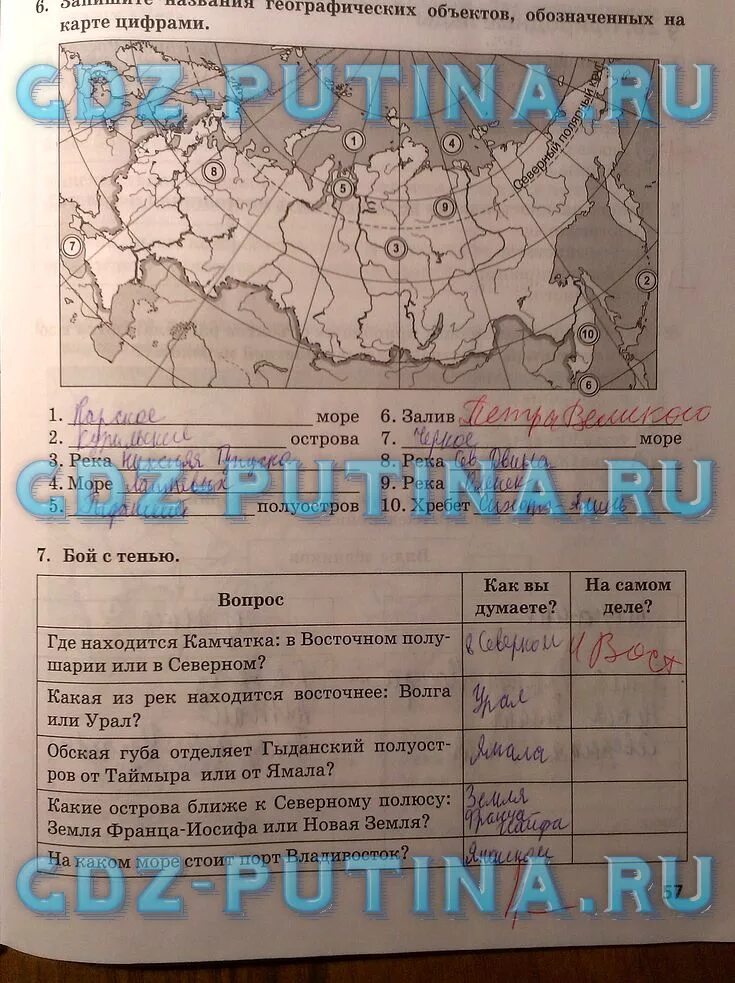 6. Запишите названия географических объектов, обозначенных на
карте цифрами.
GDZ-PUTINA.RU
Северный полярный круг
1
4
8
5
9
7
3
2
10
6
1. Карское море
2. Курильские острова
3. Река Нижняя Тунгуска
4. Море Лаптевых
5. Гыданский полуостров
6. Залив Петра Великого
7. Черное море
8. Река Сев. Двина
9. Река Оленек
10. Хребет Сихотэ-Алинь
GDZ-PUTINA.RU
7. Бой с тенью.
Вопрос
Как вы
думаете?
На самом
деле?
Где находится Камчатка: в Восточном полу-
шарии или в Северном?
в Северном
и Вост
Какая из рек находится восточнее: Волга
или Урал?
Урал
Обская губа отделяет Гыданский полуост-
ров от Таймыра или от Ямала?
Ямала
Какие острова ближе к Северному полюсу:
Земля Франца-Иосифа или Новая Земля?
Земля
Франца
Иосифа
На каком море стоит порт Владивосток?
Японском
GDZ-PUTINA.RU
57